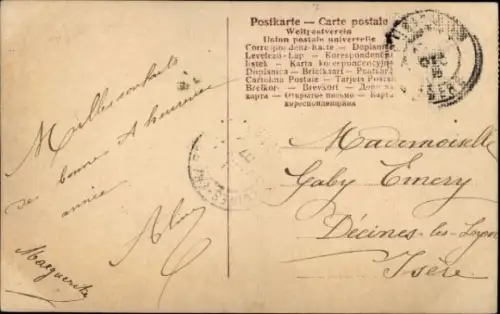 Postkarte — Carte postale
Weltpostverein
Union postale universelle
Correspondenz-karte — Dopisnice
Levelező-Lap — Korespondenční
lístek — Karta korespondencyjna
Dopisnica — Briefkaart — Postkarta
Cartolina Postale — Tarjeta Postal
Brefkort — Brevkort —
карта — Открытое письмо —
кореспонденційна
Milles souhaits
de bonne & heureuse
année
Marguerite
Mademoiselle
Gaby Emery
Décines-les-Lyon
Isère